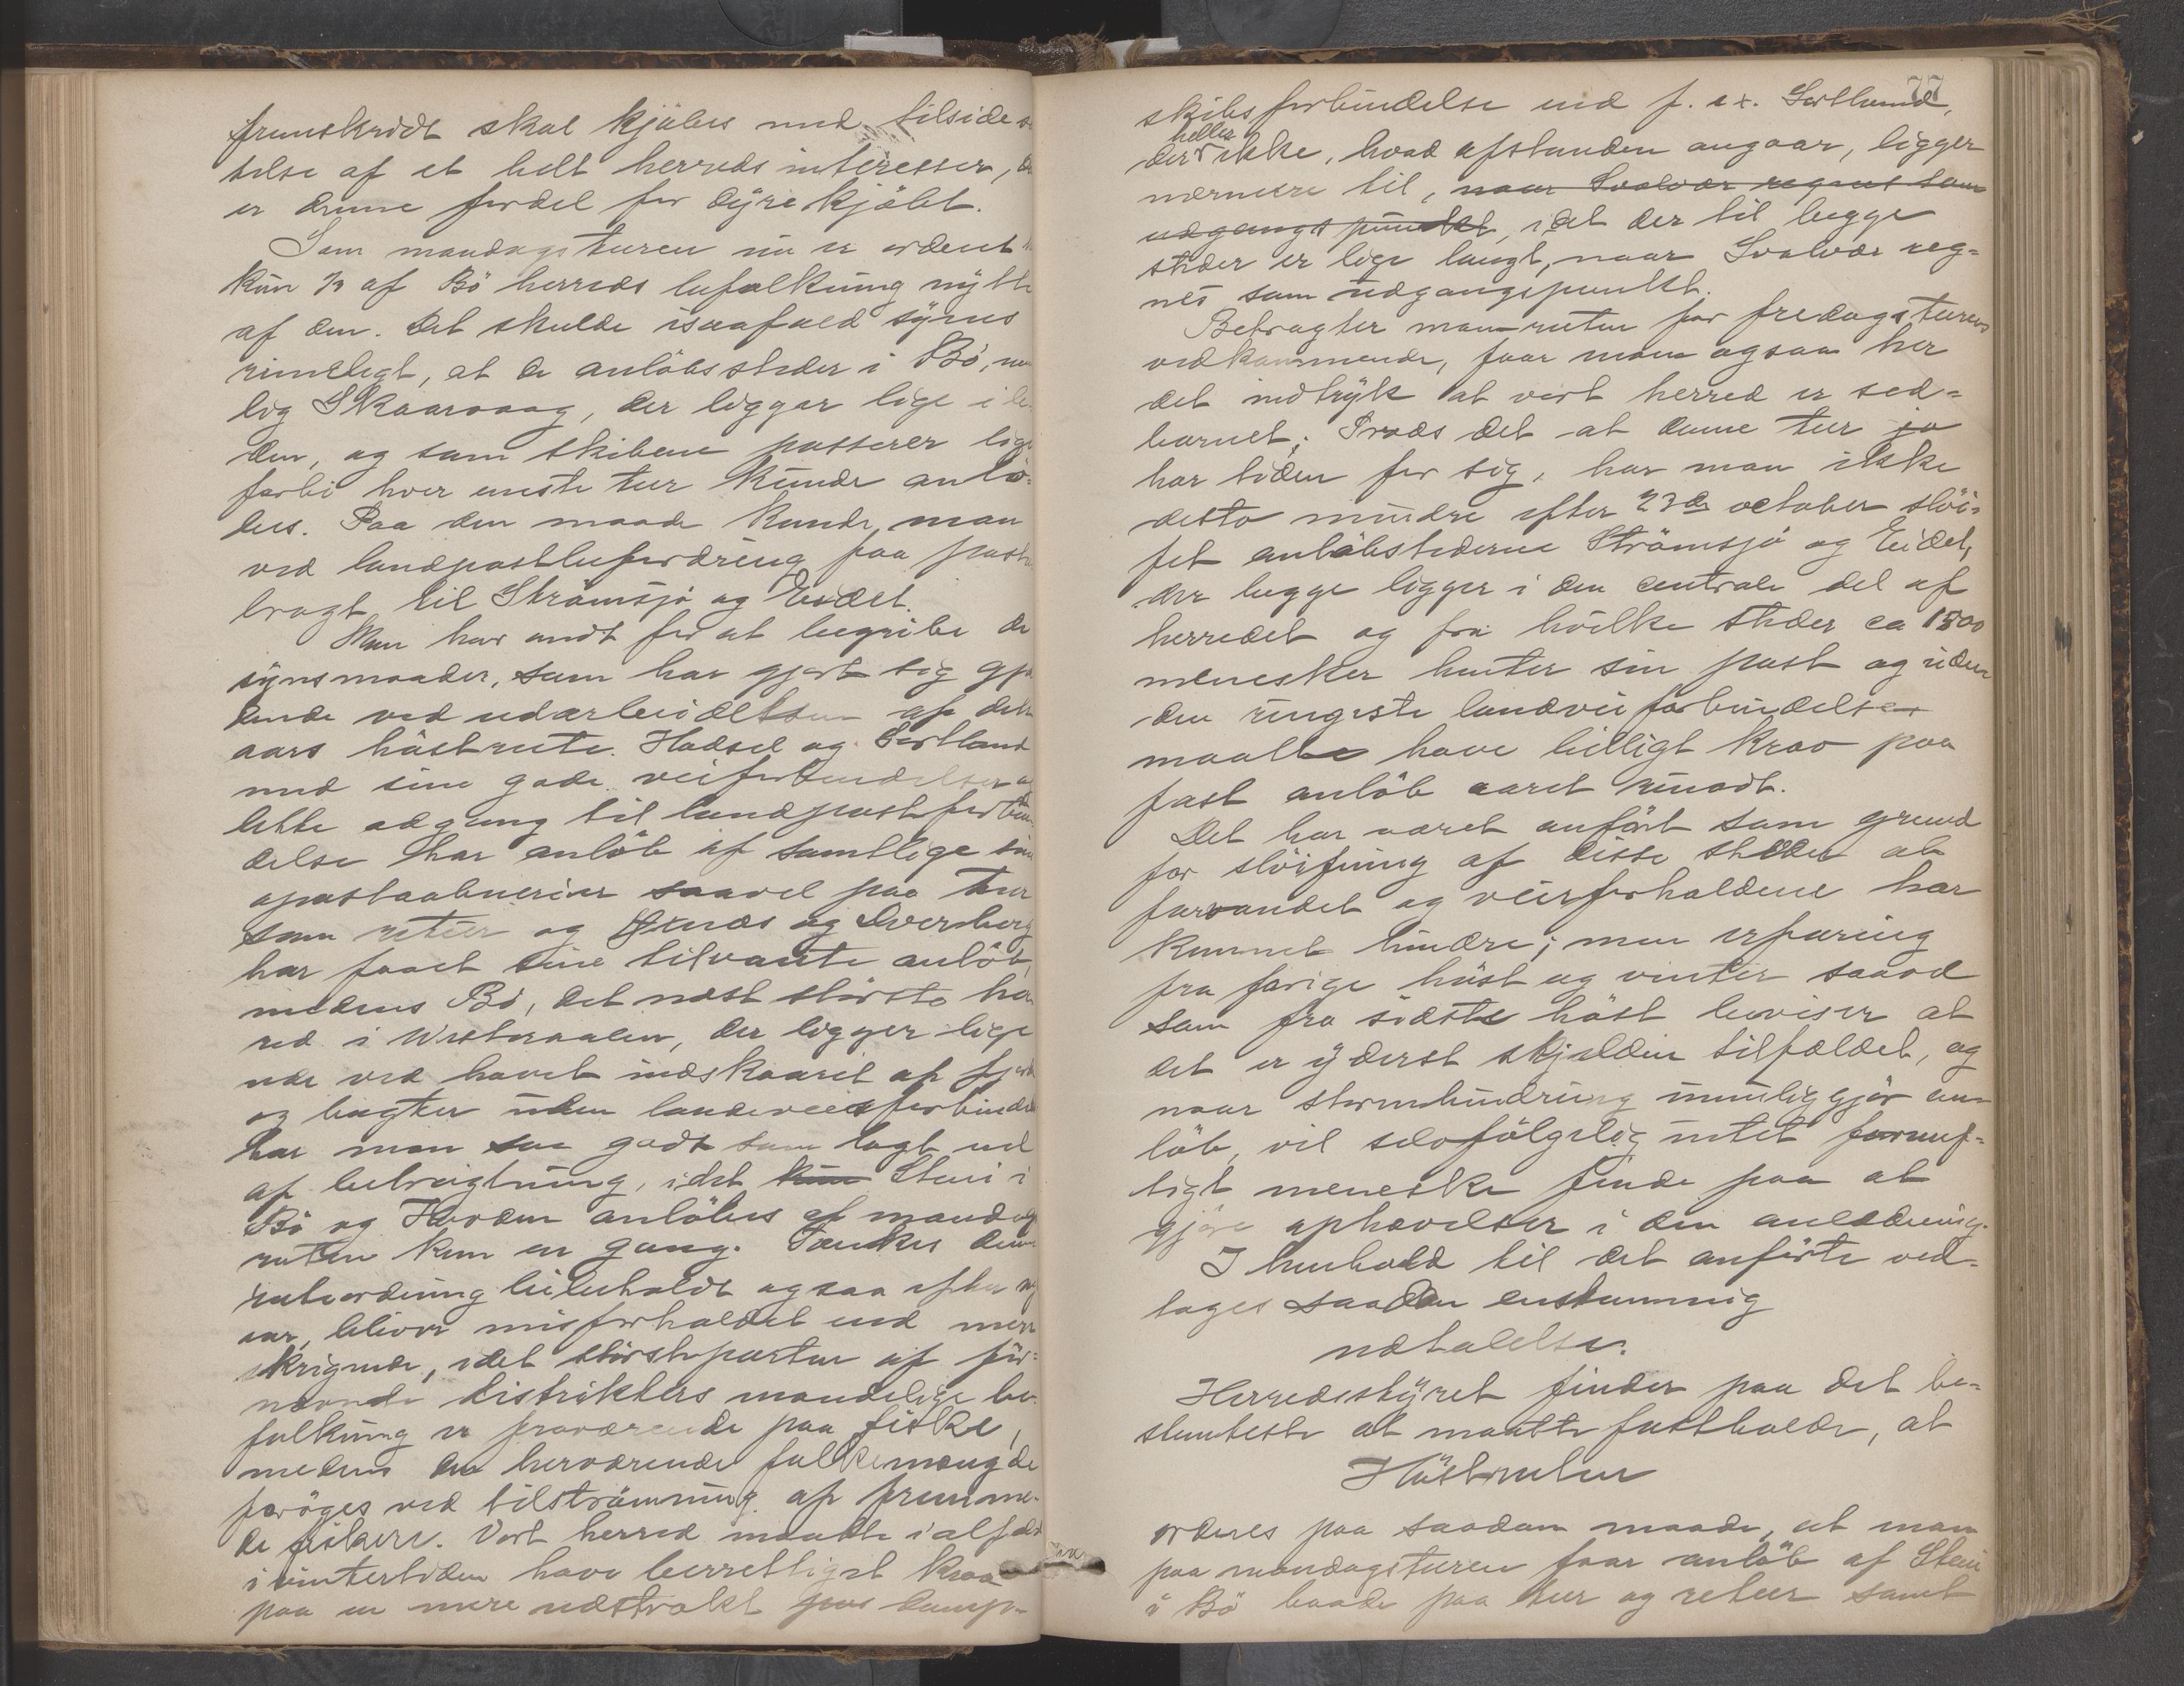 fremskridt skal kjøbes med tilside
telse af et helt herreds interesser,
er denne fordel for dyre kjøbt.
Som mandagsturen nu er ordent
kun 1/3 af Bö herreds befolkning nytte
af den. Det skulde isaafald synes
rimeligt, at de anlöbssteder i Bö,
lig Skaarvaag, der ligger lige i
den, og som skibene passerer lige
forbi hver eneste tur kunde anlö-
bes. Paa den maade kunde man
ved landpostbefordring faa post
bragt til Strömsjö og Eidet.
Man har ondt for at begribe de
synsmaader, som har gjort sig gjæ
dende ved udarbeidelsen af dette
aars höstrute. Hadsel og Sortland
med sine gode veiforbindelser
lette adgang til landpostforbin
delse har anlöb af samtlige sine
postaabnerier saavel paa tur
som retur og Öxnæs og Dverberg
har faaet sine tilvante anlöb,
medens Bö, det næst störste her
red i Westeraalen, der ligger lige
ude ved havet indskaaret af fjorde
og bugter uden landeveisforbindelse
har man saa godt som lagt ud
af betragtning, idet kun Steni i
Bö og Hovden anlöbes af mandags
ruten kun en gang. Tænkes denne
ruteordning bibeholdt ogsaa efter
aar, bliver misforholdet end mere
skrigende, idet störsteparten af för-
nævnte distrikters mandelige be-
folkning er fraværende paa fiske,
medens den herværende folkemængde
foröges ved tilströmning af fremme-
de fiskere. Vort herred maatte ialfald
i vintertiden have berettiget krav
paa en mere udstrakt damp-
77
skibsforbindelse end f. ex. Sortland,
heller
der ikke, hvad afstanden angaar, ligger
nærmere til, naar Svolvær regnes som
udgangspunktet, idet der til begge
steder er lige langt, naar Svolvær reg-
nes som udgangspunkt.
Betragter man ruten for fredagsturens
vedkommende, faar man ogsaa her
det indtryk at vort herred er sted-
barnet; Trods det at denne tur jo
har tiden for sig, har man ikke
desto mindre efter 23de october slöi-
fet anlöbstederne Strömsjö og Eidet,
der begge ligger i den centrale del af
herredet og fra hvilke steder ca 1500
menesker henter sin post og uden
den ringeste landveiforbindelse
maatte have billigt krav paa
fast anlöb aaret rundt.
Det har været anfört som grund
for slöifning af disse steder at
farvandet og veirforholdene har
kunnet hindre; men erfaring
fra forrige höst og vinter saavel
som fra sidste höst beviser at
det er yderst skjelden tilfældet, og
naar stormhindring umuliggjör an-
löb, vil selvfölgelig intet fornuf-
tigt meneske finde paa at
gjöre ophævelser i den anledning.
I henhold til det anförte ved-
toges saadan enstemmig
udtalelse.
Herredsstyret finder paa det be-
stemteste at maatte fastholde, at
Höstruten
ordnes paa saadan maade, at man
paa mandagsturen faar anlöb af Steni
i Bö baade paa tur og retur samt